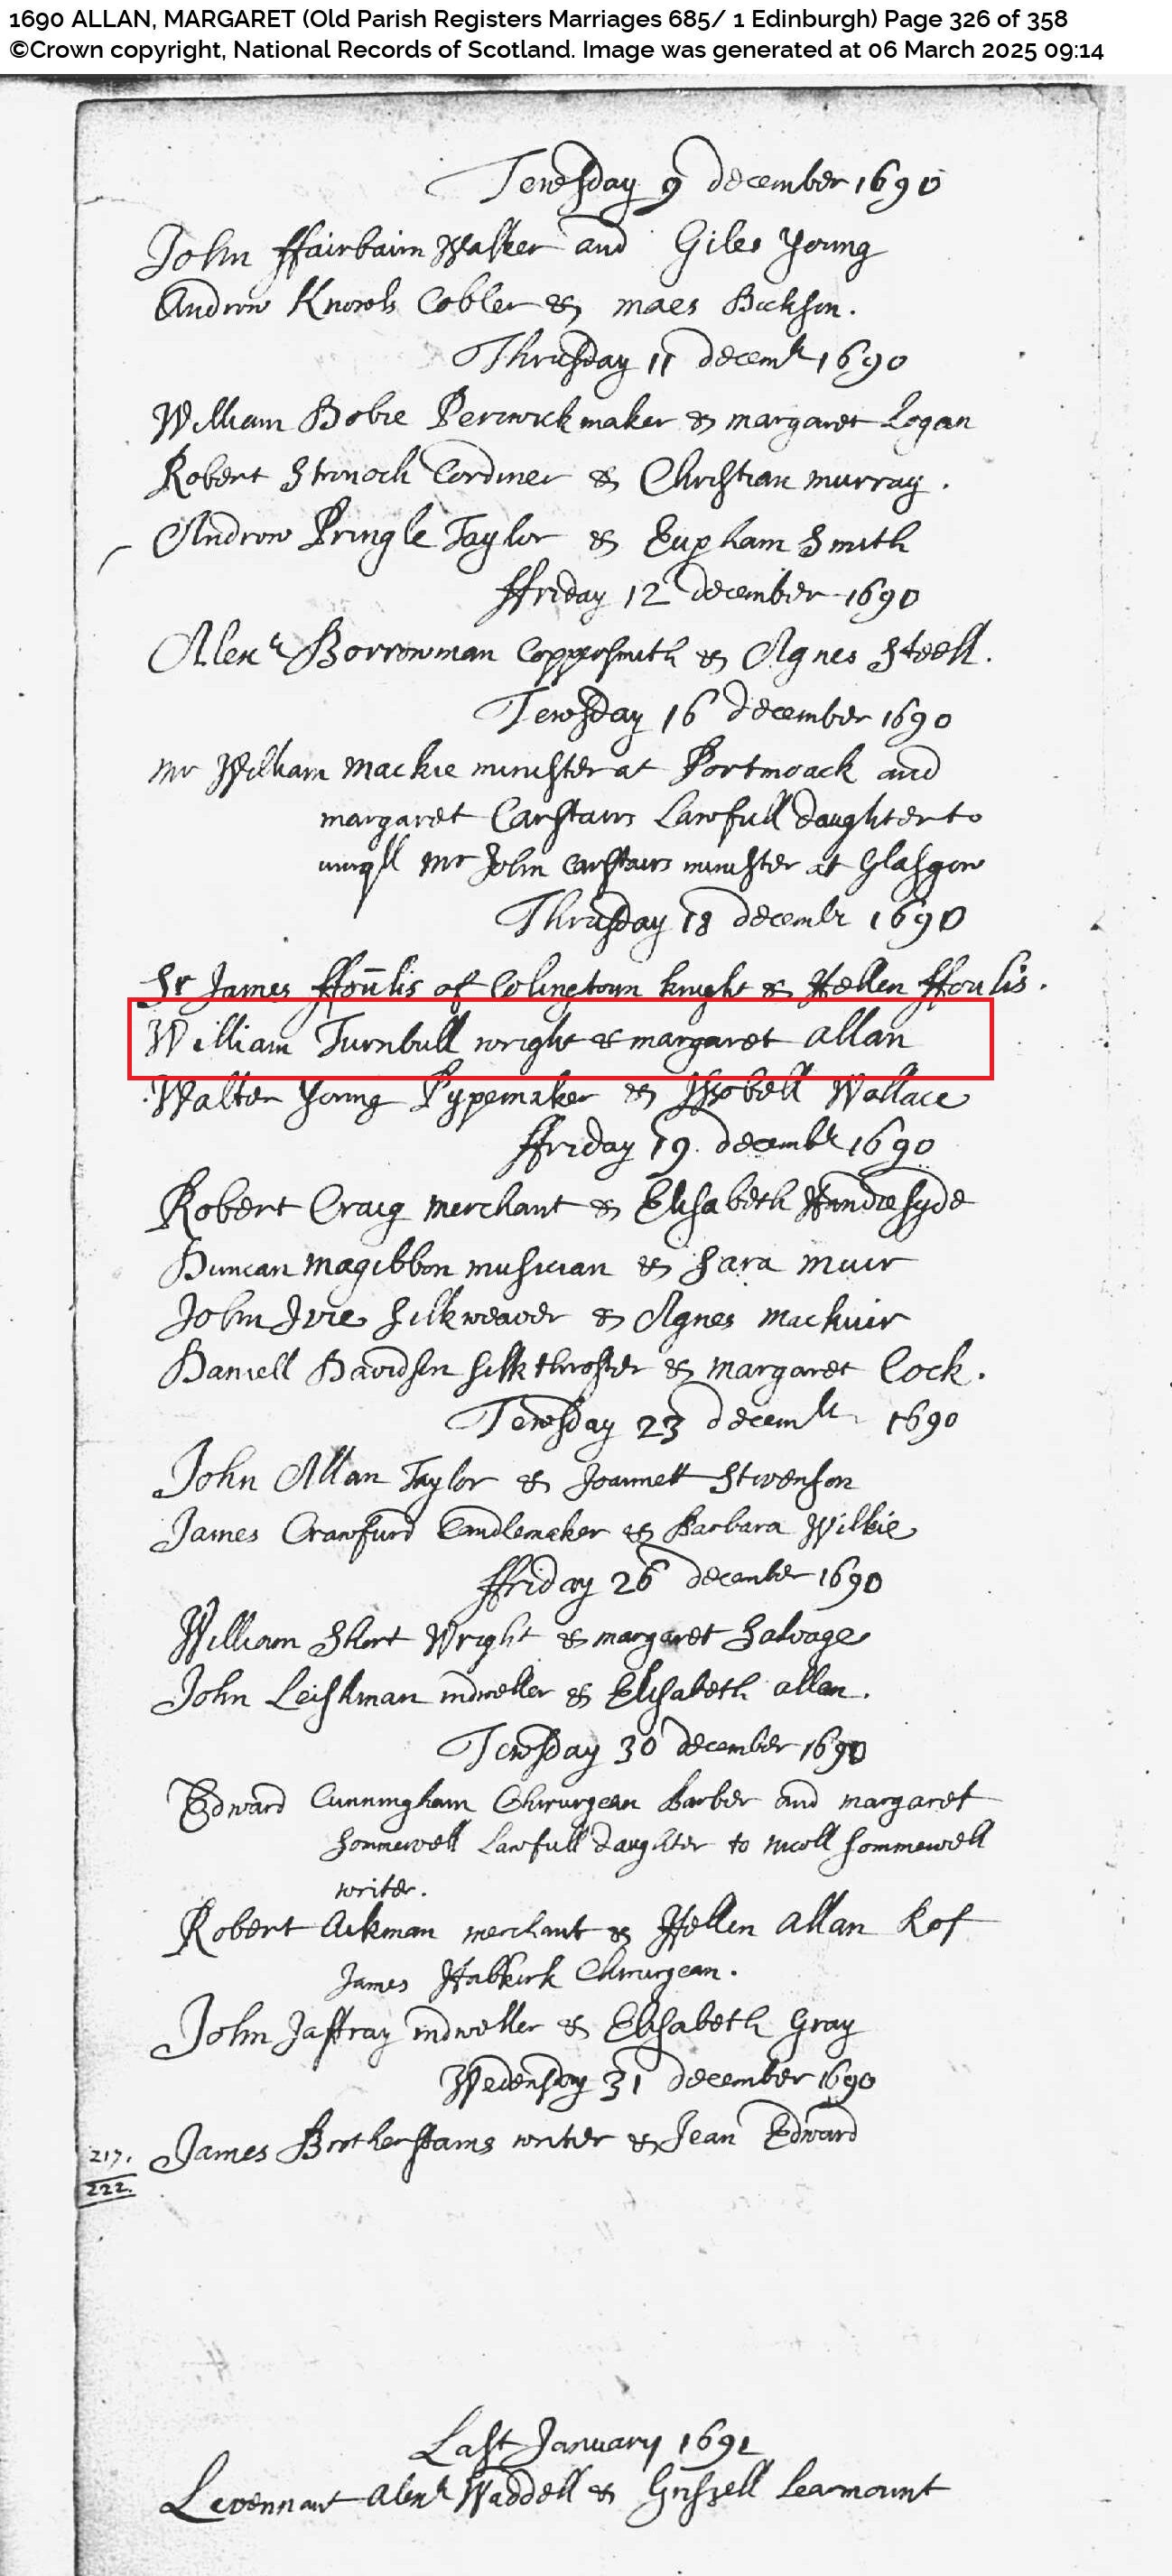 1690 ALLAN, MARGARET (Old Parish Registers Marriages 685/ 1 Edinburgh) Page 326 of 358
©Crown copyright, National Records of Scotland. Image was generated at 06 March 2025 09:14
Tewsday 9 december 1690
John ffairbairn Walker and Giles Young
Andrew Knowls Cobler & maes Dickson.
Thrusday 11 decembr 1690
William Bobie Perewick maker & margaret Logan
Robert Stronoch Cordiner & Christian murray.
Andrew Pringle Taylor & Eupham Smith
ffriday 12 december 1690
Alexr Borrowman Coppersmith & Agnes Steell.
Tewsday 16 december 1690
mr William mackie minister at Portmoack and
margaret Carstairs Lawfull daughter to
umqll mr John Carstairs minister at Glasgow
Thrusday 18 decembr 1690
Sr James ffoulis of Colingtoun knight & Hellen ffoulis.
William Turnbull wright & margaret allan
Walter Young Pypemaker & Issobell Wallace
ffriday 19. decembr 1690
Robert Craig merchant & Elisabeth Handiesyde
Duncan magibbon musician & Sara muir
John Ivie Silkweaver & Agnes mackuir
Daniell Davidson silk throster & margaret Cock.
Tewsday 23 decembr 1690
John Allan Taylor & Joannett Stivenson
James Crawfurd Candlemaker & Barbara Wilkie
ffriday 26 december 1690
William Short Wright & margaret Salvage
John Leishman indweller & Elisabeth allan.
Tewsday 30 december 1690
Edward Cunningham Chirurgean Barber and margaret
Sommervell Lawfull daughter to nicoll Sommervell
writer.
Robert Aikman merchant & Hellin allan Rof
James Habkirk Chirurgean.
John Jaffray indweller & Elisabeth Gray
Wedensday 31 december 1690
James Brotherstains writer & Jean Edward
217.
222.
Last January 1691
Levennant alexr Waddell & Grissell Learmount